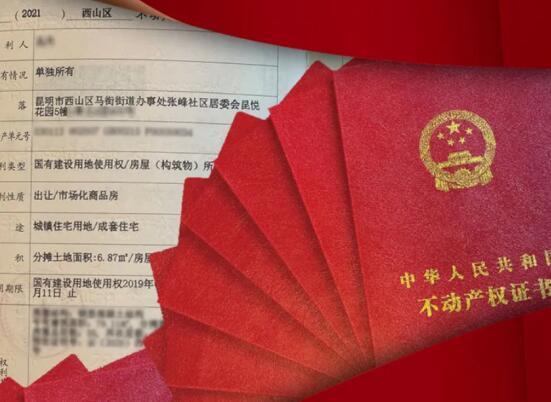 (2021) 西山区 不动
利 人
有情况 单独所有
落 昆明市西山区马街街道办事处张峰社区居委会昆悦
花园5幢
产单元号
利类型 国有建设用地使用权/房屋（构筑物）所
利性质 出让/市场化商品房
途 城镇住宅用地/成套住宅
积 分摊土地面积:6.87㎡/房屋
期限 国有建设用地使用权2019年
月11日 止
权
利
中华人民共和国
不动产权证书